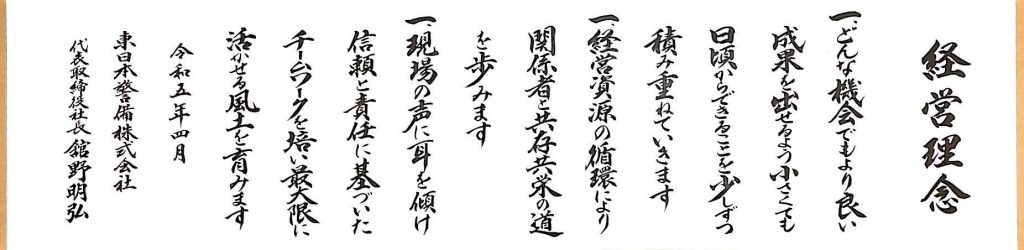 経営理念
一、どんな機会でもより良い
成果を出せるよう小さくても
日頃からできることを少しずつ
積み重ねていきます
一、経営資源の循環により
関係者と共存共栄の道
を歩みます
一、現場の声に耳を傾け
信頼と責任に基づいた
チームワークを培い最大限に
活かせる風土を育みます
令和五年四月
東日本警備株式会社
代表取締役社長 舘野明弘